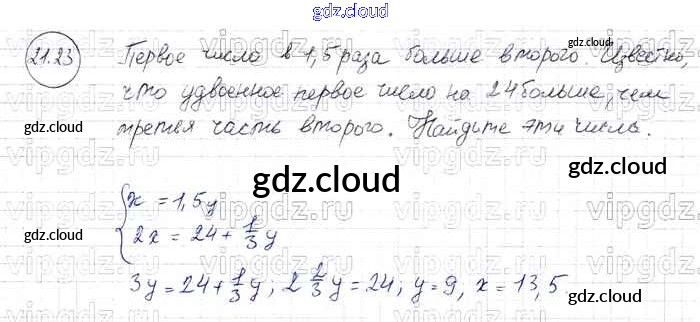 gdz.cloud
21.23
Первое число в 1,5 раза больше второго. Известно,
что удвоенное первое число на 24 больше, чем
третья часть второго. Найдите эти числа.
gdz.cloud
gdz.cloud
gdz.cloud
gdz.cloud
x = 1,5y
2x = 24 + 1/3 y
gdz.cloud
gdz.cloud
3y = 24 + 1/3 y; 2 2/3 y = 24; y = 9, x = 13,5
gdz.cloud